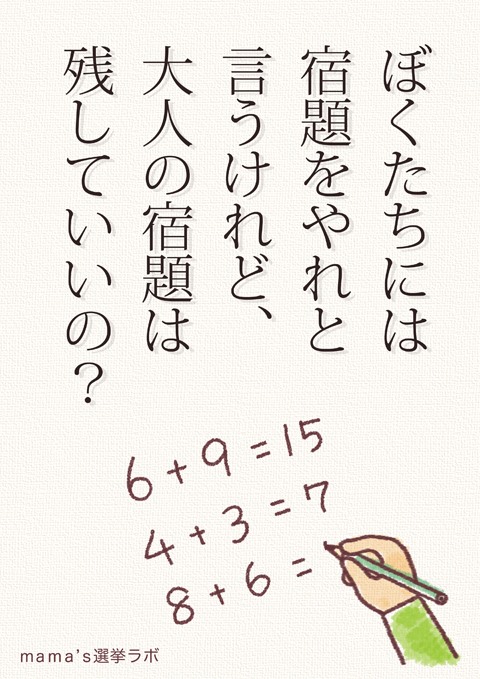 ぼくたちには
宿題をやれと
言うけれど、
大人の宿題は
残していいの？
6+9=15
4+3=7
8+6=
mama's選挙ラボ